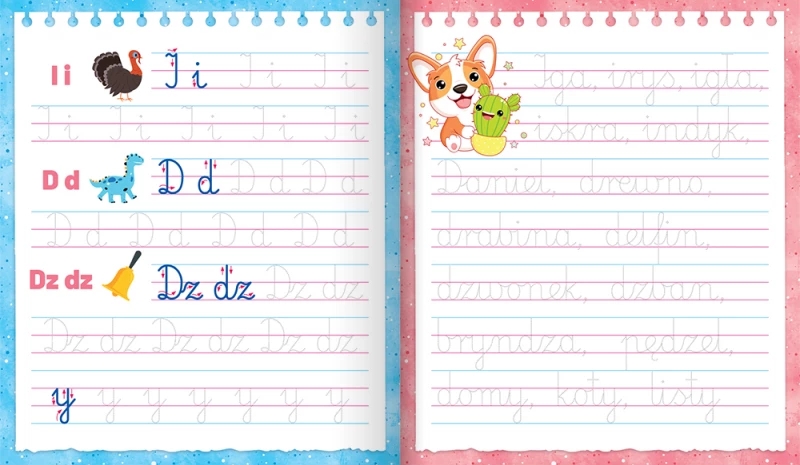 I i I i I i I i
I i I i I i I i I i
D d D d D d D d
D d D d D d D d
Dz dz Dz dz Dz dz
Dz dz Dz dz Dz dz
y y y y y y y
Iga, irys, igła,
iskra, indyk,
Daniel, drewno,
drabina, delfin,
dzwonek, dzban,
bryndza, pędzel,
domy, koty, listy